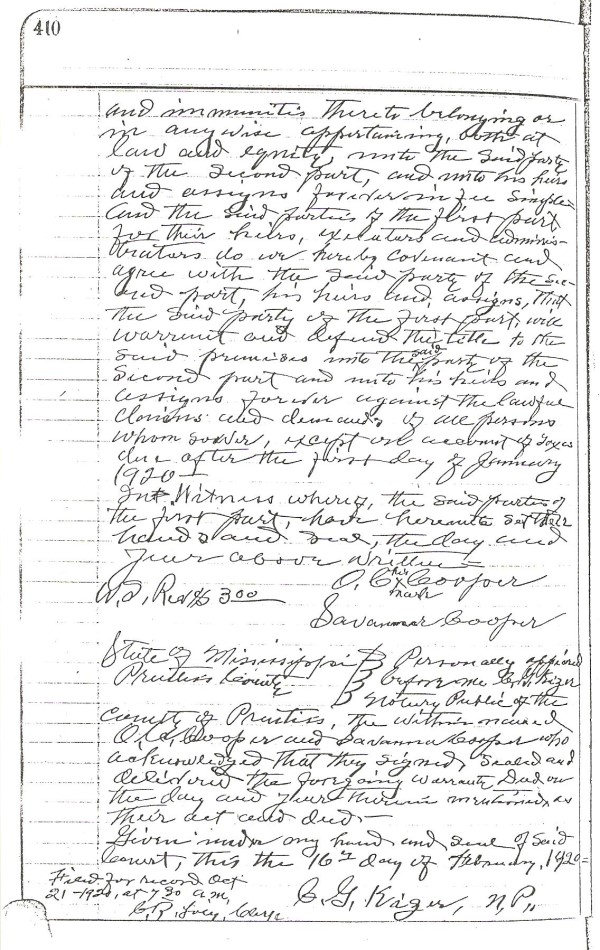 410
and immunitis thereto belonging or
in anywise appertaining, both at
law and equity, unto the said party
of the second part, and unto his heirs
and assigns forever in fee simple
and the said parties of the first part
for their heirs, executors and adminis-
trators do we hereby covenant and
agree with the said party of the sec-
ond part, his heirs and assigns, that
the said party of the first part, will
warrant and defend the title to the
said premises unto the said party of the
second part and unto his heirs and
assigns forever against the lawful
claims and demands of all persons
whom soever, except on account of Taxes
due after the first day of January
1920 —
In Witness whereof, the said parties of
the first part, have hereunto set their
hands and seal, the day and
year above written —
O. C. his x mark Cooper
Rev $3.00
Savannar Cooper
State of Mississippi } Personally appeared
Prentiss County } before me C. G. Kizer
} Notary Public of the
County of Prentiss, the within named
O. C. Cooper and Savanna Cooper who
acknowledged that they signed, sealed and
delivered the foregoing warranty Deed on
the day and year therein mentioned as
their act and deed —
Given under my hand and seal of said
Court, this the 16th day of February, 1920 =
Filed for record Oct
21-1920, at 7 30 a.m.
C. G. Kizer, N.P.,
C. R. Clerk